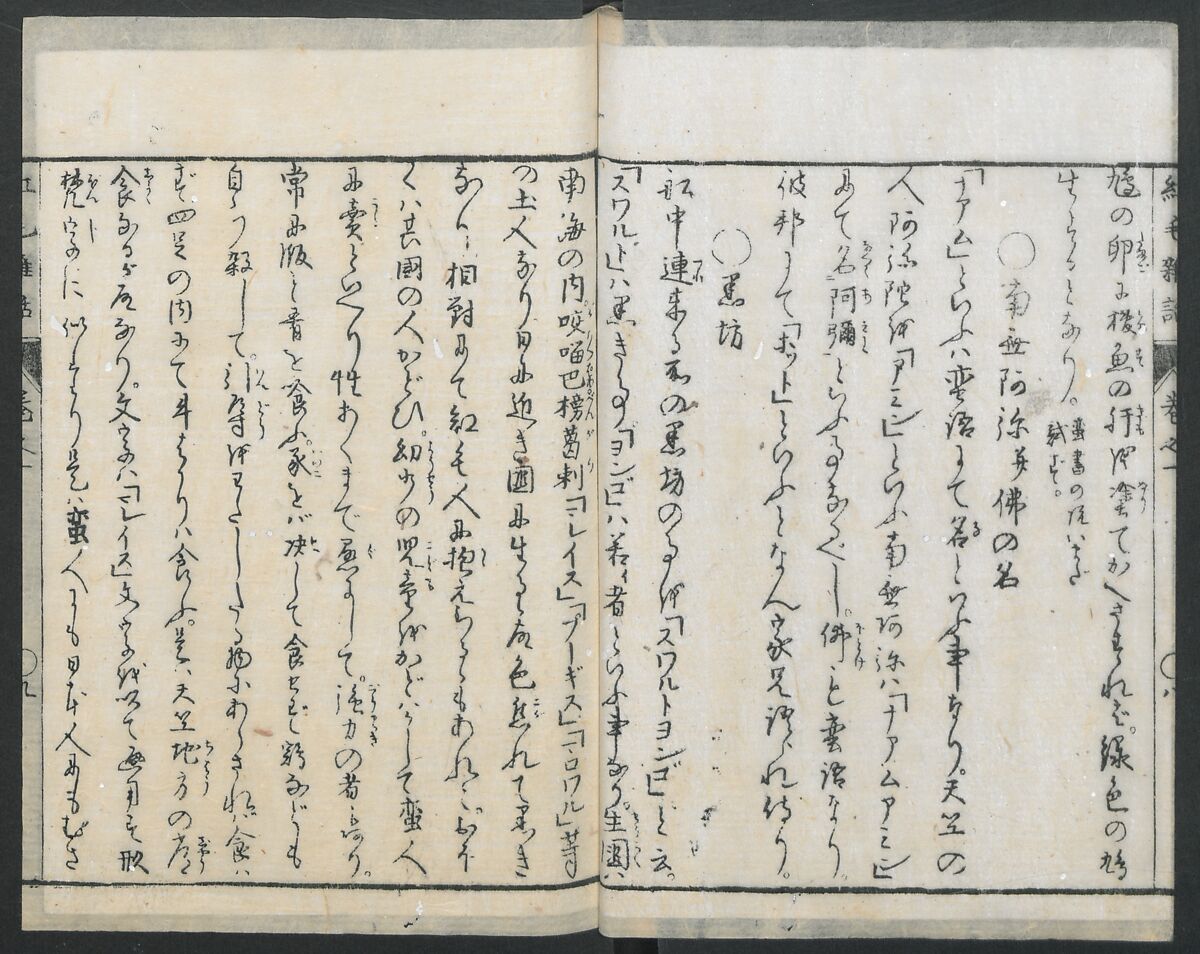 紅毛雜話 卷之一 ○八
鳩の卵に機魚の肝を塗てかへさすれば緑色の鳩
生るゝとなり。蛮書の説いまだ
試ず。
○南無阿弥并佛の名
「ナアム」といふハ蛮語にて名といふ事なり。天竺の
人阿弥陀を「アミン」といふ南無阿弥ハ「ナアムアミン」
にて名阿彌といふ事なるべし。佛も蛮語なり
彼邦にて「ボット」といふとなん家兄語れ侍り。
○黒坊
船中連来る所の黒坊の事を「スワルトヨンゴ」と云。
「スワルト」ハ黒き事「ヨンゴ」ハ若き者といふ事なり。生國ハ
南海の内咬𠺕吧榜葛剌「ミレイス」「ブーギス」「マロワル」等
の土人なり日に近き國に生るゝ故色焦れて黒き
なり。相對にて紅毛人に抱えらるゝもあれど。おほ
くハ其國の人かどひ。幼少の児童をかどハかして蛮人
に賣といへり性あくまで愚にして。強力の者多し。
常に飯と音を喰ふ。豕をバ决して食せず鶏などハも
自ら殺して。引導をわたしたる物にあらされバ食ハ
ず四足の内にて羊はかりハ食ふ。是ハ天竺地方の産
食なる故なり。文字ハ「ミレイス」文字を以て通用す形
梵字に似たり是ハ蛮人にも日本人にもむさ
紅毛雜話 卷之一 ○九